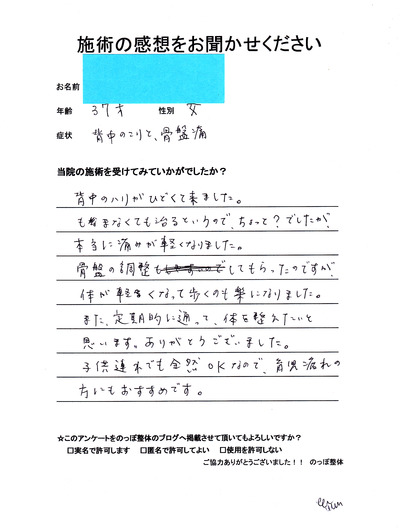 施術の感想をお聞かせください
お名前
年齢 37才 性別 女
症状 背中のこりと、骨盤痛
当院の施術を受けてみていかがでしたか？
背中のハリがひどくて来ました。
もまなくても治るというので、ちょっと?でしたが、
本当に痛みが軽くなりました。
骨盤の調整もしてもらったのですが、
体が軽くなって歩くのも楽になりました。
また、定期的に通って、体を整えたいと
思います。ありがとうございました。
子供連れでも全然OKなので、育児疲れの
方にもおすすめです。
☆このアンケートをのっぽ整体のブログへ掲載させて頂いてもよろしいですか？
□実名で許可します □匿名で許可してよい □使用を許可しない
ご協力ありがとうございました！！ のっぽ整体